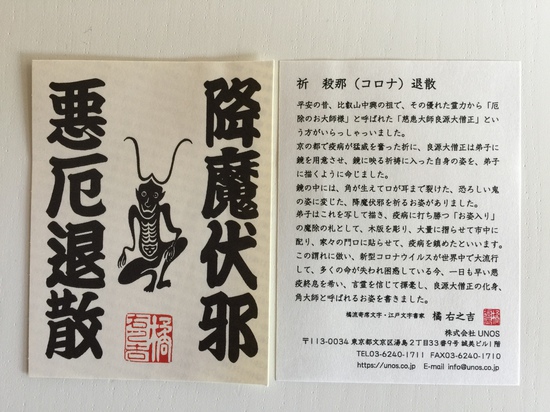 降魔伏邪
悪厄退散
祈　殺那（コロナ）退散
平安の昔、比叡山中興の祖で、その優れた霊力から「厄
除のお大師様」と呼ばれた「慈恵大師良源大僧正」とい
う方がいらっしゃいました。
京の都で疫病が猛威を奮った折に、良源大僧正は弟子に
鏡を用意させ、鏡に映る祈祷に入った自身の姿を、弟子
に描くように命じました。
鏡の中には、角が生えて口が耳まで裂けた、恐ろしい鬼
の姿に変じた、降魔伏邪を祈るお姿がありました。
弟子はこれを写して描き、疫病に打ち勝つ「お姿入り」
の魔除の札として、木版を彫り、大量に摺らせて市中に
配り、家々の門口に貼らせて、疫病を鎮めたといいます。
この謂れに倣い、新型コロナウイルスが世界中で大流行
して、多くの命が失われ困惑している今、一日も早い悪
疫終息を希い、言霊を信じて揮毫し、良源大僧正の化身、
角大師と呼ばれるお姿を書きました。
橘流寄席文字・江戸文字書家　橘 右之吉
株式会社 UNOS
〒113-0034 東京都文京区湯島2丁目33番9号 誠美ビル1階
TEL03-6240-1711　FAX03-6240-1710
https://unos.co.jp　E-mail info@unos.co.jp